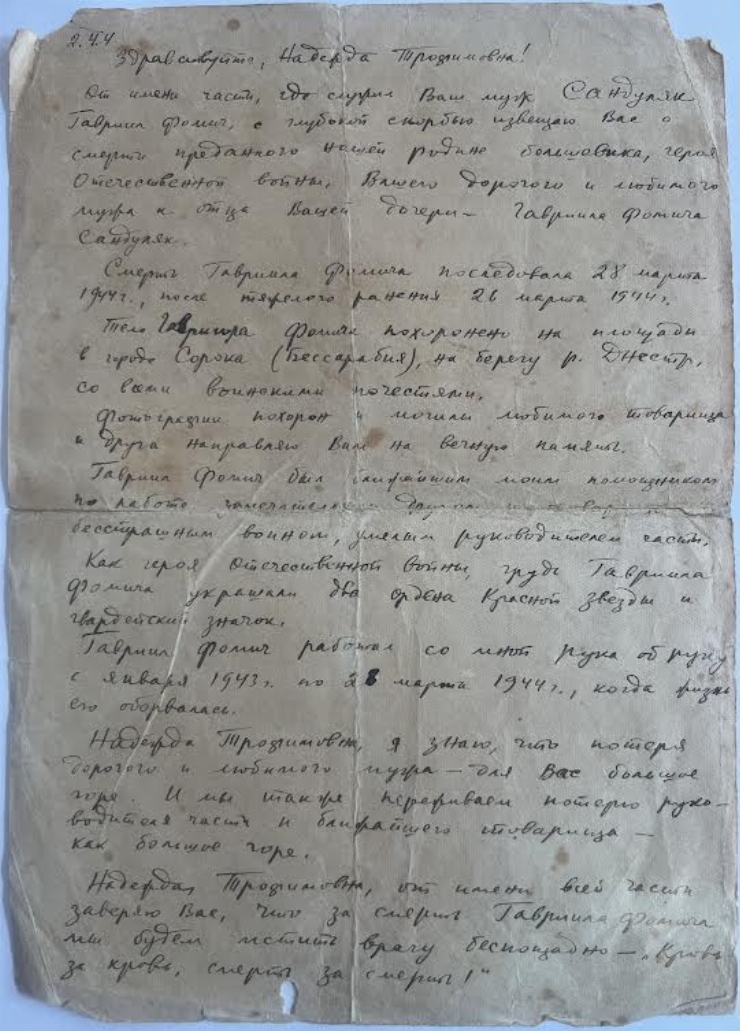 2.4.4
Здравствуйте, Надежда Трофимовна!
От имени части, где служил Ваш муж Сандуляк
Гавриил Фомич, с глубокой скорбью извещаю Вас о
смерти преданного нашей родине большевика, героя
Отечественной войны, Вашего дорогого и любимого
мужа и отца Вашей дочери – Гавриила Фомича
Сандуляк.
Смерть Гавриила Фомича последовала 28 марта
1944г., после тяжелого ранения 26 марта 1944г.
Тело Фомича похоронено на площади
в городе Сорока (Бессарабия), на берегу р. Днестр,
со всеми воинскими почестями.
Фотографии похорон и могилы любимого товарища
и друга направляю Вам на вечную память.
Гавриил Фомич был ближайшим моим помощником
по работе, другом
бесстрашным воином, умелым руководителем части.
Как героя Отечественной войны, грудь Гавриила
Фомича украшали два ордена Красной звезды и
гвардейский значок.
Гавриил Фомич работал со мной рука об руку
с января 1943г. по 28 марта 1944г., когда жизнь
его оборвалась.
Надежда Трофимовна, я знаю, что потеря
дорогого и любимого мужа – для Вас большое
горе. И мы также переживаем потерю руко-
водителя части и ближайшего товарища –
как большое горе.
Надежда Трофимовна, от имени всей части
заверяю Вас, что за смерть Гавриила Фомича
мы будем мстить врагу беспощадно – „Кровь
за кровь, смерть за смерть!"